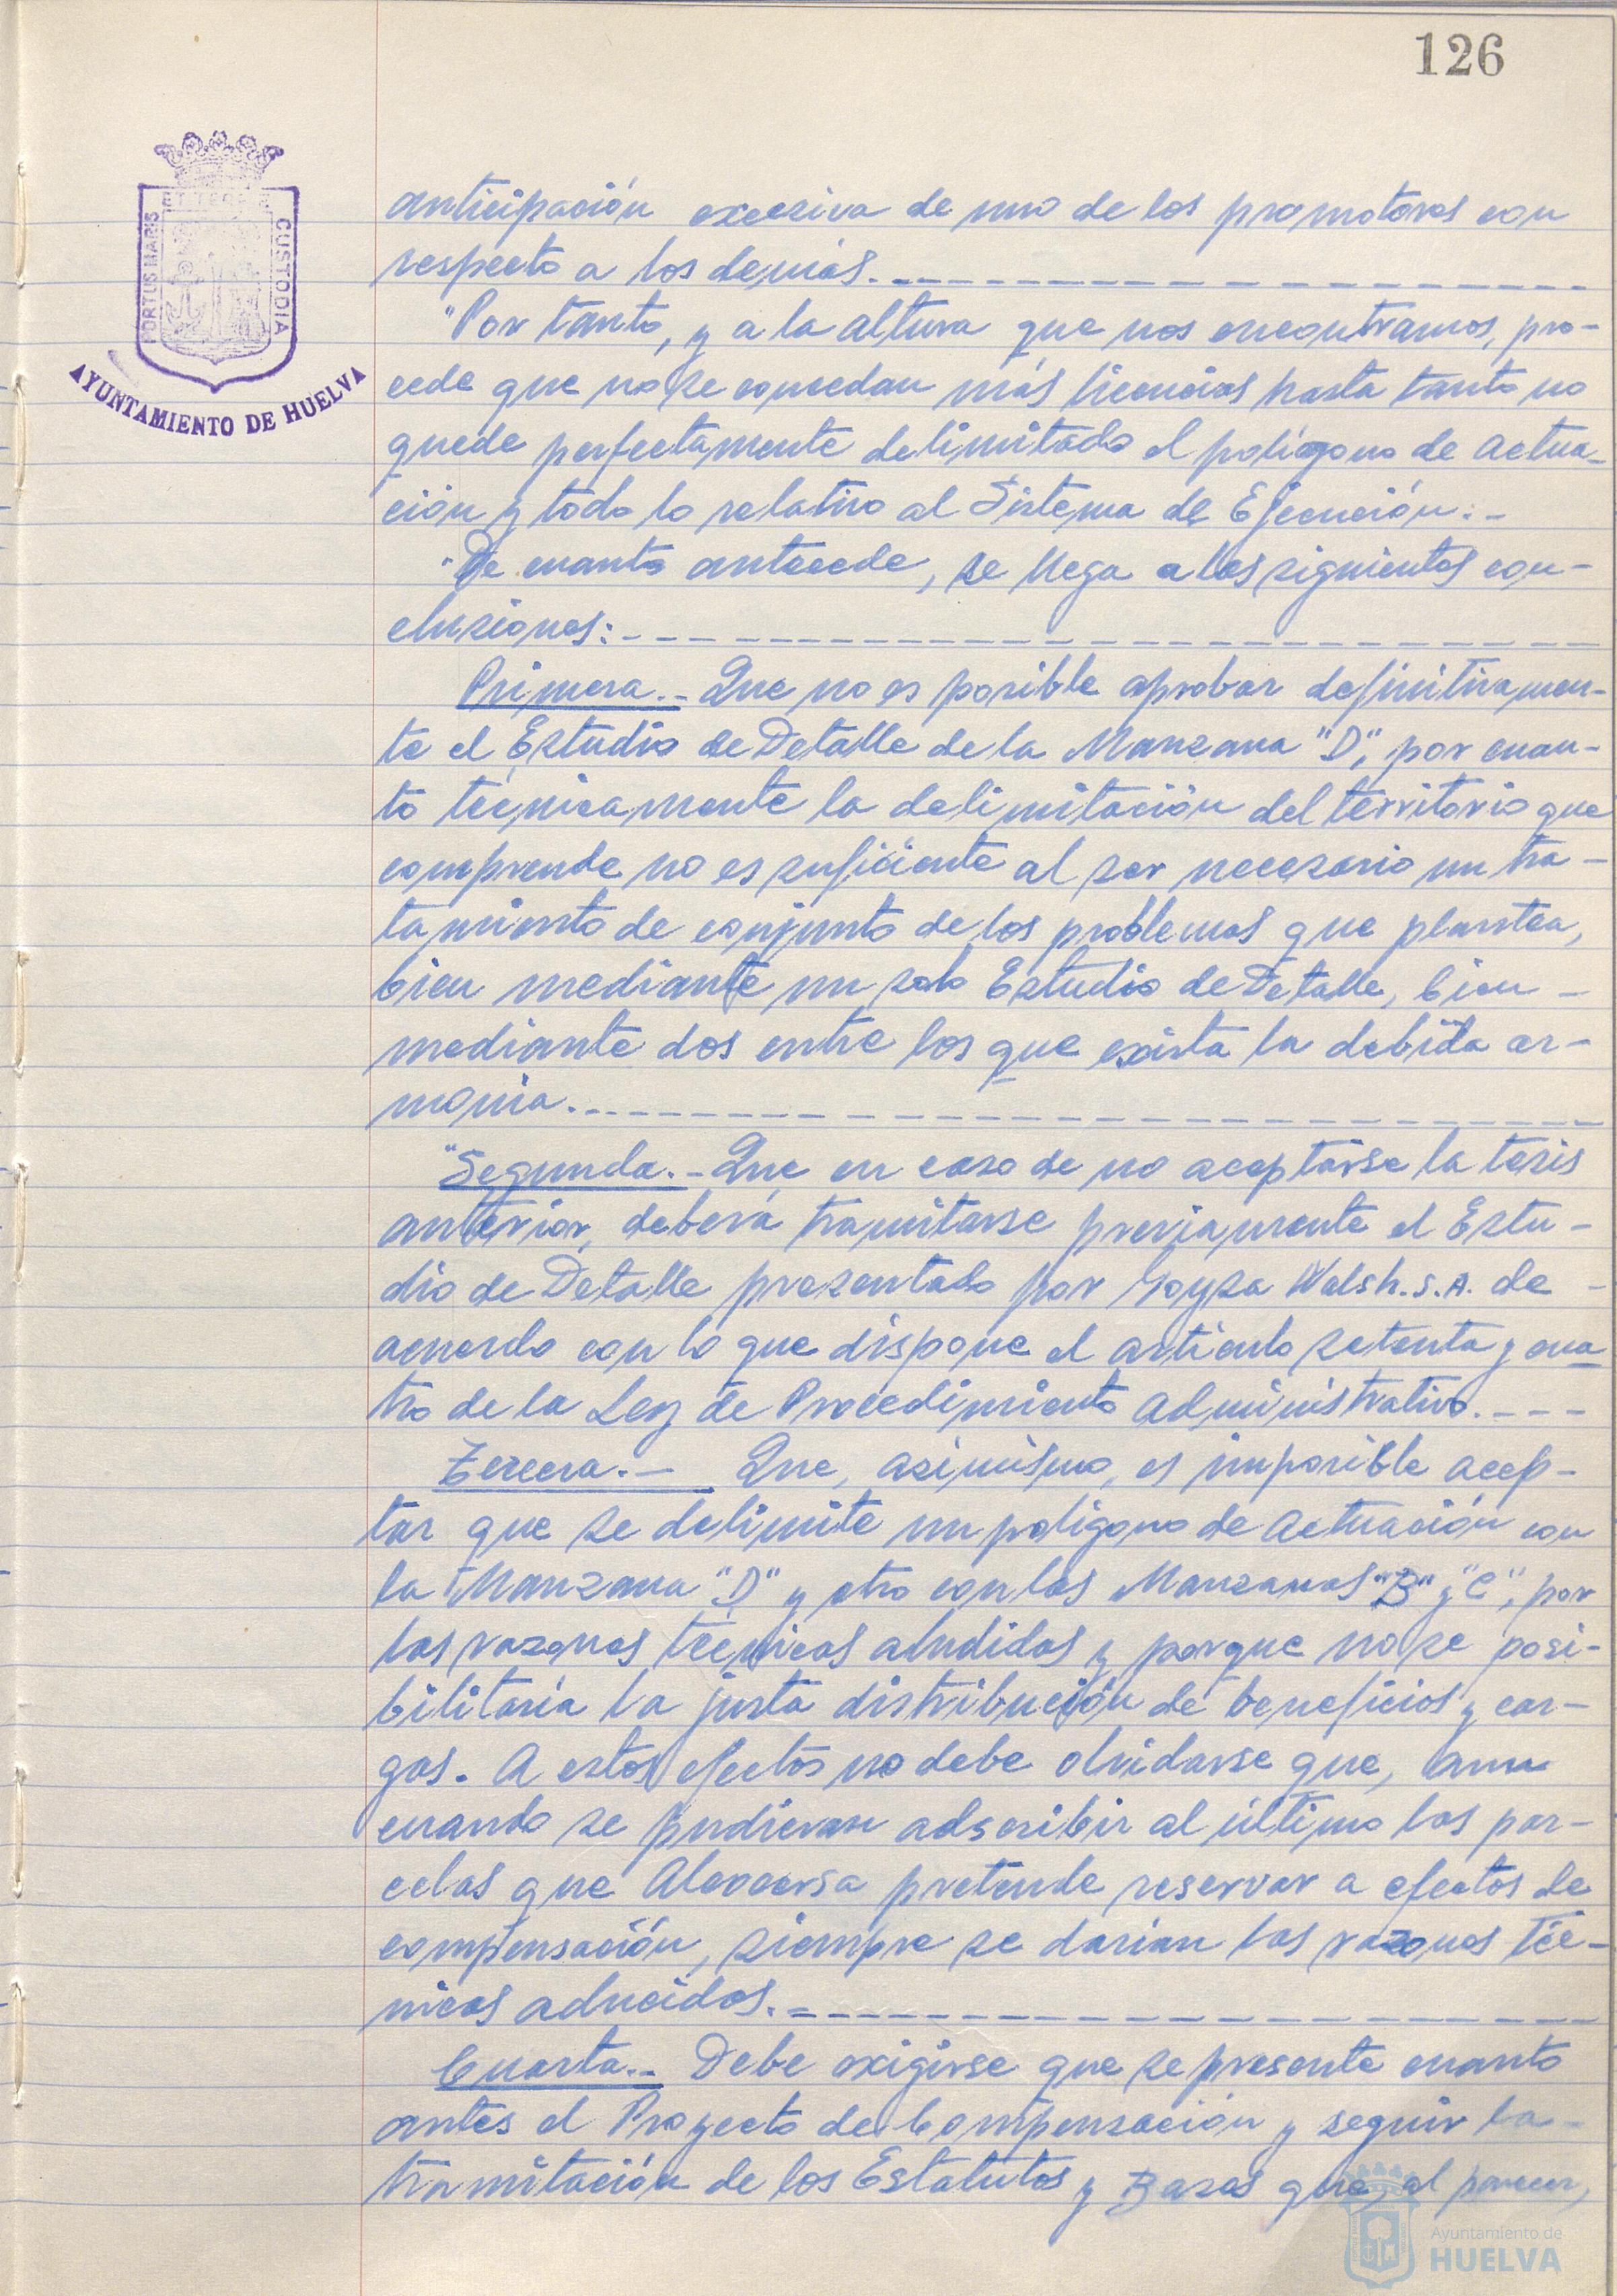 126
PORTUS MARIS ET TERRE CUSTODIA
AYUNTAMIENTO DE HUELVA
anticipación excesiva de uno de los promotores con
respecto a los demás.
"Por tanto, y a la altura que nos encontramos, pro-
cede que no se concedan más licencias hasta tanto no
quede perfectamente delimitado el polígono de actua-
ción y todo lo relativo al Sistema de Ejecución.-
"De cuanto antecede, se llega a las siguientes con-
clusiones:
Primera.- Que no es posible aprobar definitivamen-
te el Estudio de Detalle de la Manzana "D", por cuan-
to técnicamente la delimitación del territorio que
comprende no es suficiente al ser necesario un tra-
tamiento de conjunto de los problemas que plantea,
bien mediante un solo Estudio de Detalle, bien -
mediante dos entre los que exista la debida ar-
monía.
"Segunda.- Que en caso de no aceptarse la tesis
anterior, deberá tramitarse previamente el Estu-
dio de Detalle presentado por Walsh. S.A. de -
acuerdo con lo que dispone el artículo setenta y cua
tro de la Ley de Procedimiento Administrativo.
Tercera.- Que, asimismo, es imposible acep-
tar que se delimite un polígono de Actuación con
la Manzana "D" y otro con las Manzanas "B" y "C", por
las razones técnicas aludidas y porque no se posi-
bilitaría la justa distribución de beneficios y car-
gas. A estos efectos no debe olvidarse que, aun
cuando se pudieran adscribir al último las par-
celas que pretende reservar a efectos de
compensación, siempre se darían las razones téc-
nicas aducidas.
Cuarta.- Debe exigirse que se presente cuanto
antes el Proyecto de Compensación y seguir la -
tramitación de los Estatutos y Bases que, al parecer,
Ayuntamiento de
HUELVA